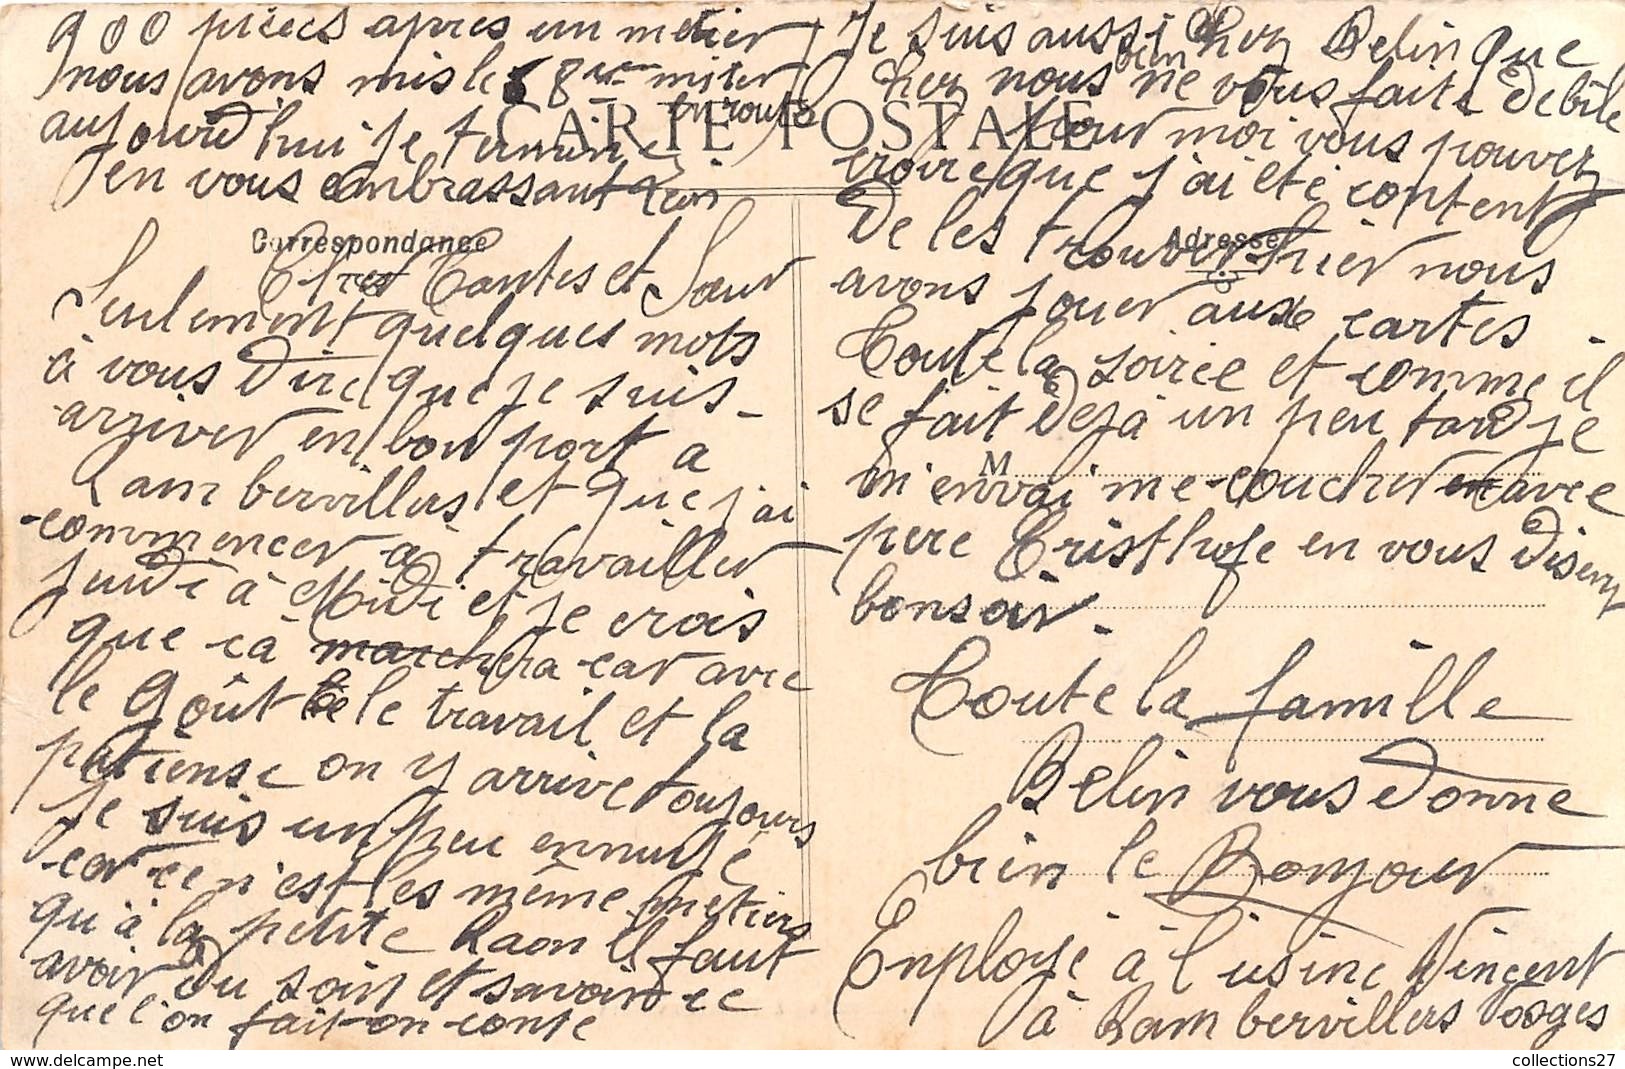 900 pièces après un métier
nous avons mis le 8me métier
en route
aujourd'hui je termine
en vous embrassant Léon
CARTE POSTALE
Correspondance
Chres Tantes et Sœur
Seulement quelques mots
à vous dire que je suis
arriver en bon port a
Rambervillers et que j'ai
commencer a travailler
jeudi à Midi et je crois
que ca marchera car avec
le goût le travail et la
patiense on y arrive toujours
Je suis un peu ennuyé
car ce n'est les même metiers
qu'à la petite Raon il faut
avoir du soin et savoir ce
que l'on fait on conte
Je suis aussi bien chez Belin que
chez nous ne vous faite de bile
pour moi vous pouvez
croire que j'ai été content
de les trouver hier nous
Adresse
avons jouer aux cartes
Toute la soirée et comme il
se fait dejà un peu tard je
M
m'envai me coucher avec
pere Cristhofe en vous disent
bonsoir.
Toute la famille
Belin vous donne
bien le Bonjour
Employé à l'usine Vincent
à Rambervillers Vosges
collections27